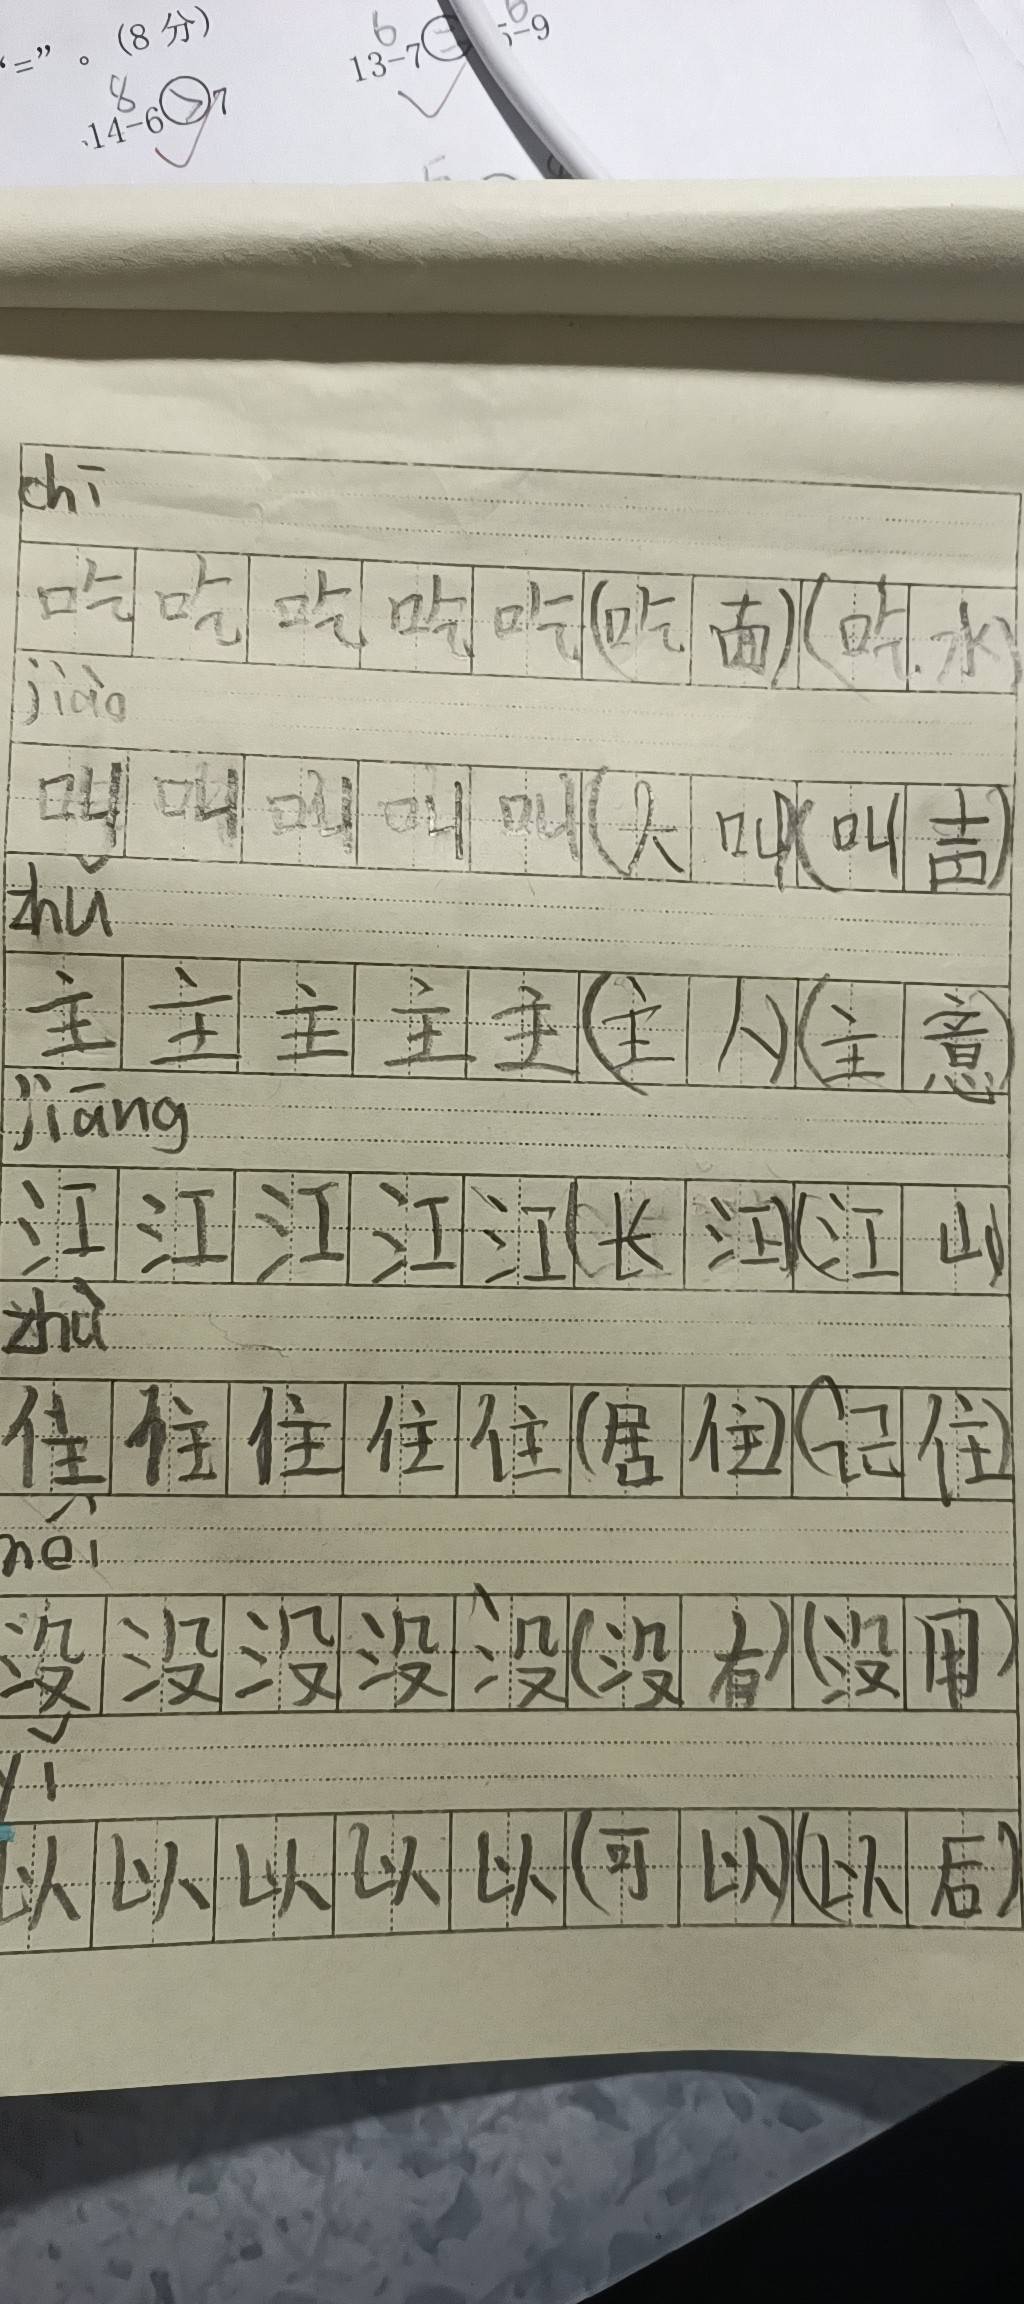 “=”。(8分)
6
13-7=
6
5-9
8
14-6>7
chī
吃吃吃吃吃(吃面)(吃水)
jiào
叫叫叫叫叫(大叫)(叫声)
zhǔ
主主主主主(主人)(主意)
jiāng
江江江江江(长江)(江山)
zhù
住住住住住(居住)(记住)
méi
没没没没没(没有)(没用)
yǐ
以以以以以(可以)(以后)